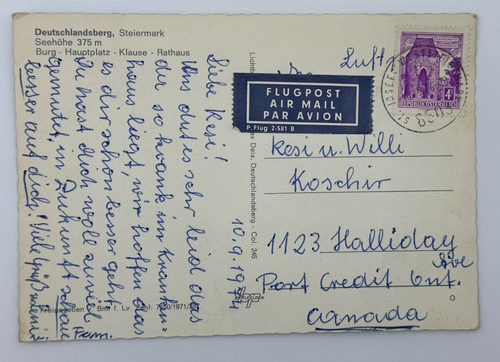 Deutschlandsberg, Steiermark
Seehöhe 375 m
Burg - Hauptplatz - Klause - Rathaus
Liebe Resi!
Uns tut es sehr leid das
du so krank im Kranken-
haus liegst, wir hoffen das
es dir schon besser geht.
Du hast dich wohl zuviel
gemutet, in Zukunft schaue
besser auf dich! Viele
Fam.
10.9.1971
FLUGPOST
AIR MAIL
PAR AVION
P. Flug 2-581 B
Deix, Deutschlandsberg - Col. 245
REPUBLIK ÖSTERREICH
4
ST. JOSEF
Resi u. Willi
Koschir
1123 Halliday
Ave
Port Credit Ont.
Canada